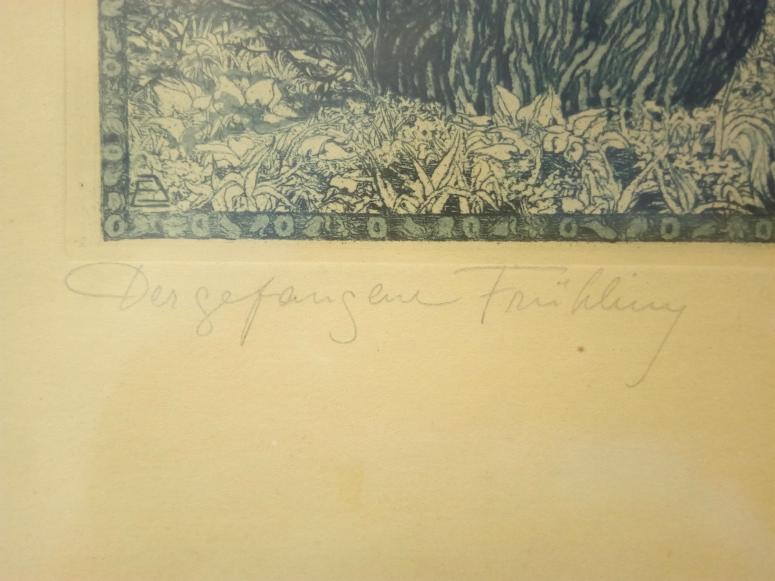 Der gefangene Frühling